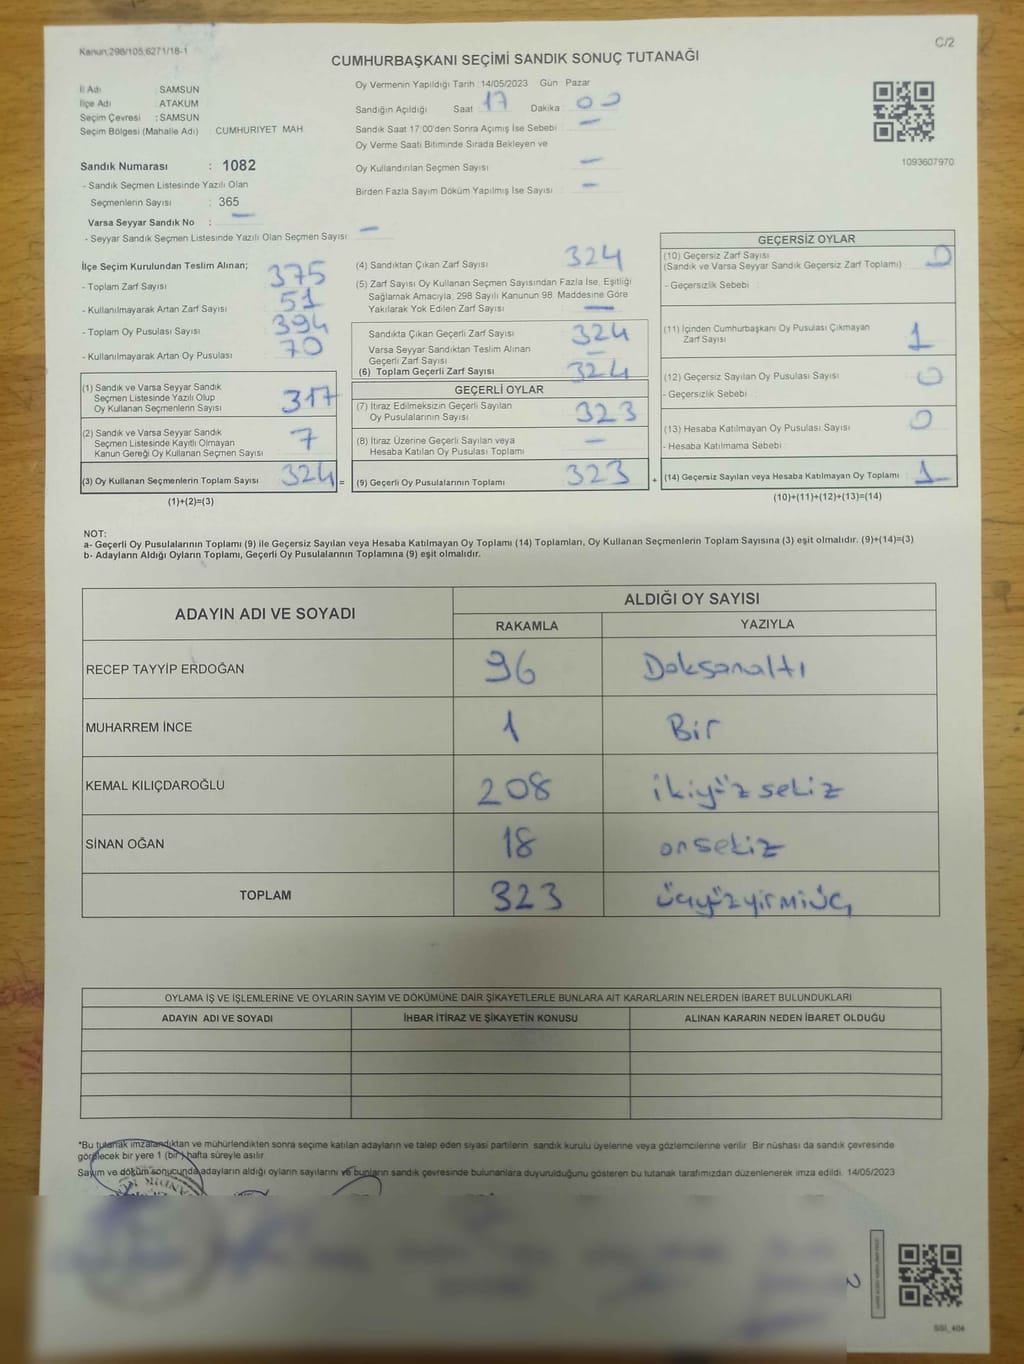 Kanun:298/105,6271/18-1
C/2
CUMHURBAŞKANI SEÇİMİ SANDIK SONUÇ TUTANAĞI
İl Adı : SAMSUN
İlçe Adı : ATAKUM
Seçim Çevresi : SAMSUN
Seçim Bölgesi (Mahalle Adı) : CUMHURIYET MAH.
Sandık Numarası : 1082
- Sandık Seçmen Listesinde Yazılı Olan
Seçmenlerin Sayısı : 365
Varsa Seyyar Sandık No : —
- Seyyar Sandık Seçmen Listesinde Yazılı Olan Seçmen Sayısı: —
Oy Vermenin Yapıldığı Tarih : 14/05/2023 Gün : Pazar
Sandığın Açıldığı Saat 17 Dakika 00
Sandık Saat 17:00'den Sonra Açımış İse Sebebi : —
Oy Verme Saati Bitiminde Sırada Bekleyen ve
Oy Kullandırılan Seçmen Sayısı : —
Birden Fazla Sayım Döküm Yapılmış İse Sayısı : —
1093607970
İlçe Seçim Kurulundan Teslim Alınan;
- Toplam Zarf Sayısı : 375
- Kullanılmayarak Artan Zarf Sayısı : 51
- Toplam Oy Pusulası Sayısı : 394
- Kullanılmayarak Artan Oy Pusulası : 70
(1) Sandık ve Varsa Seyyar Sandık
Seçmen Listesinde Yazılı Olup
Oy Kullanan Seçmenlerin Sayısı : 317
(2) Sandık ve Varsa Seyyar Sandık
Seçmen Listesinde Kayıtlı Olmayan
Kanun Gereği Oy Kullanan Seçmen Sayısı : 7
(3) Oy Kullanan Seçmenlerin Toplam Sayısı : 324 =
(1)+(2)=(3)
(4) Sandıktan Çıkan Zarf Sayısı : 324
(5) Zarf Sayısı Oy Kullanan Seçmen Sayısından Fazla İse, Eşitliği
Sağlamak Amacıyla, 298 Sayılı Kanunun 98. Maddesine Göre
Yakılarak Yok Edilen Zarf Sayısı : —
Sandıkta Çıkan Geçerli Zarf Sayısı : 324
Varsa Seyyar Sandıktan Teslim Alınan
Geçerli Zarf Sayısı : —
(6) Toplam Geçerli Zarf Sayısı : 324
GEÇERLİ OYLAR
(7) İtiraz Edilmeksizin Geçerli Sayılan
Oy Pusulalarının Sayısı : 323
(8) İtiraz Üzerine Geçerli Sayılan veya
Hesaba Katılan Oy Pusulası Toplamı : —
(9) Geçerli Oy Pusulalarının Toplamı : 323 +
GEÇERSİZ OYLAR
(10) Geçersiz Zarf Sayısı
(Sandık ve Varsa Seyyar Sandık Geçersiz Zarf Toplamı) : 0
- Geçersizlik Sebebi :
(11) İçinden Cumhurbaşkanı Oy Pusulası Çıkmayan
Zarf Sayısı : 1
(12) Geçersiz Sayılan Oy Pusulası Sayısı : 0
- Geçersizlik Sebebi :
(13) Hesaba Katılmayan Oy Pusulası Sayısı : 0
- Hesaba Katılmama Sebebi :
(14) Geçersiz Sayılan veya Hesaba Katılmayan Oy Toplamı : 1
(10)+(11)+(12)+(13)=(14)
NOT:
a- Geçerli Oy Pusulalarının Toplamı (9) ile Geçersiz Sayılan veya Hesaba Katılmayan Oy Toplamı (14) Toplamları, Oy Kullanan Seçmenlerin Toplam Sayısına (3) eşit olmalıdır. (9)+(14)=(3)
b- Adayların Aldığı Oyların Toplamı, Geçerli Oy Pusulalarının Toplamına (9) eşit olmalıdır.
ADAYIN ADI VE SOYADI
ALDIĞI OY SAYISI
RAKAMLA YAZIYLA
RECEP TAYYİP ERDOĞAN 96 Doksanaltı
MUHARREM İNCE 1 Bir
KEMAL KILIÇDAROĞLU 208 ikiyüzsekiz
SİNAN OĞAN 18 onsekiz
TOPLAM 323 üçyüzyirmiüç
OYLAMA İŞ VE İŞLEMLERİNE VE OYLARIN SAYIM VE DÖKÜMÜNE DAİR ŞİKAYETLERLE BUNLARA AİT KARARLARIN NELERDEN İBARET BULUNDUKLARI
ADAYIN ADI VE SOYADI İHBAR İTİRAZ VE ŞİKAYETİN KONUSU ALINAN KARARIN NEDEN İBARET OLDUĞU
*Bu tutanak imzalandıktan ve mühürlendikten sonra seçime katılan adayların ve talep eden siyasi partilerin sandık kurulu üyelerine veya gözlemcilerine verilir. Bir nüshası da sandık çevresinde
görülecek bir yere 1 (bir) hafta süreyle asılır.
Sayım ve döküm sonucunda adayların aldığı oyların sayılarını ve bunların sandık çevresinde bulunanlara duyurulduğunu gösteren bu tutanak tarafımızdan düzenlenerek imza edildi. 14/05/2023